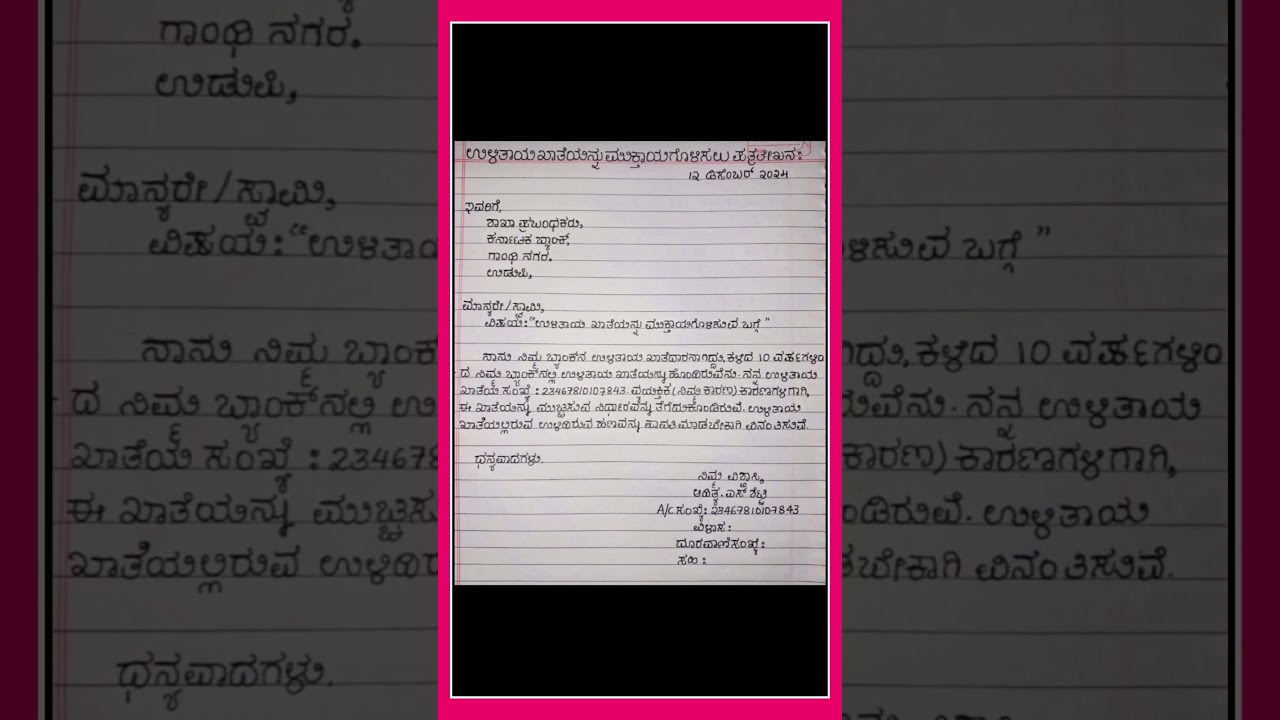 ಉಳಿತಾಯ ಖಾತೆಯನ್ನು ಮುಕ್ತಾಯಗೊಳಿಸಲು ಪತ್ರಲೇಖನ:
೧೨ ಡಿಸೆಂಬರ್ ೨೦೨4
ಇವರಿಗೆ,
ಶಾಖಾ ಪ್ರಬಂಧಕರು,
ಕರ್ನಾಟಕ ಬ್ಯಾಂಕ್,
ಗಾಂಧಿ ನಗರ.
ಉಡುಪಿ,
ಮಾನ್ಯರೇ/ಸ್ವಾಮಿ,
ವಿಷಯ: "ಉಳಿತಾಯ ಖಾತೆಯನ್ನು ಮುಕ್ತಾಯಗೊಳಿಸುವ ಬಗ್ಗೆ"
ನಾನು ನಿಮ್ಮ ಬ್ಯಾಂಕ್‌ನ ಉಳಿತಾಯ ಖಾತೆದಾರನಾಗಿದ್ದು, ಕಳೆದ 10 ವರ್ಷಗಳಿಂ
ದ ನಿಮ್ಮ ಬ್ಯಾಂಕ್‌ನಲ್ಲಿ ಉಳಿತಾಯ ಖಾತೆಯನ್ನು ಹೊಂದಿರುವೆನು. ನನ್ನ ಉಳಿತಾಯ
ಖಾತೆಯ ಸಂಖ್ಯೆ : 23467810107843. ವೈಯಕ್ತಿಕ (ನಿಮ್ಮ ಕಾರಣ) ಕಾರಣಗಳಿಗಾಗಿ,
ಈ ಖಾತೆಯನ್ನು ಮುಚ್ಚಿಸುವ ನಿರ್ಧಾರವನ್ನು ತೆಗೆದುಕೊಂಡಿರುವೆ. ಉಳಿತಾಯ
ಖಾತೆಯಲ್ಲಿರುವ ಉಳಿದಿರುವ ಹಣವನ್ನು ಪಾವತಿ ಮಾಡಬೇಕಾಗಿ ವಿನಂತಿಸುವೆ.
ಧನ್ಯವಾದಗಳು.
ನಿಮ್ಮ ವಿಶ್ವಾಸಿ,
ಆದಿತ್ಯ. ಎಸ್ ಶೆಟ್ಟಿ
A/c ಸಂಖ್ಯೆ: 23467810107843
ವಿಳಾಸ :
ದೂರವಾಣಿ ಸಂಖ್ಯೆ :
ಸಹಿ :